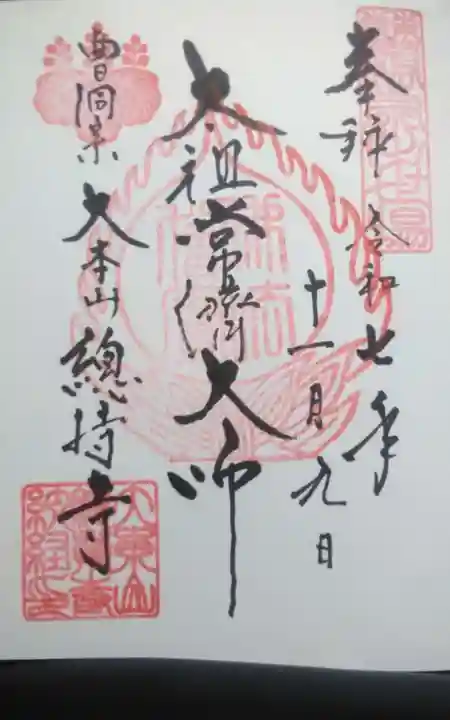 奉拝 令和七年
十一月九日
太祖常濟大師
曹洞宗 大本山 總持寺